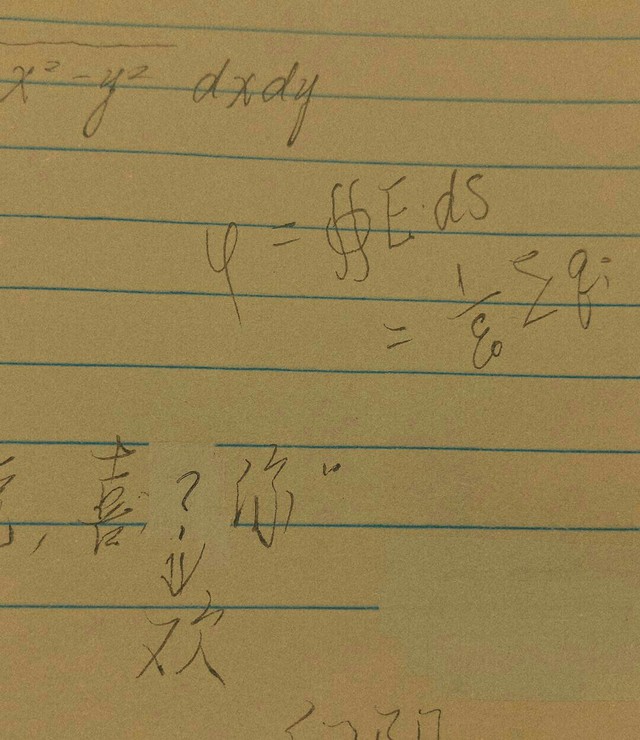 x²-y² dxdy
φ = ∯E·dS
= 1/ε₀ Σqi
, 喜?你"
⇓
欢